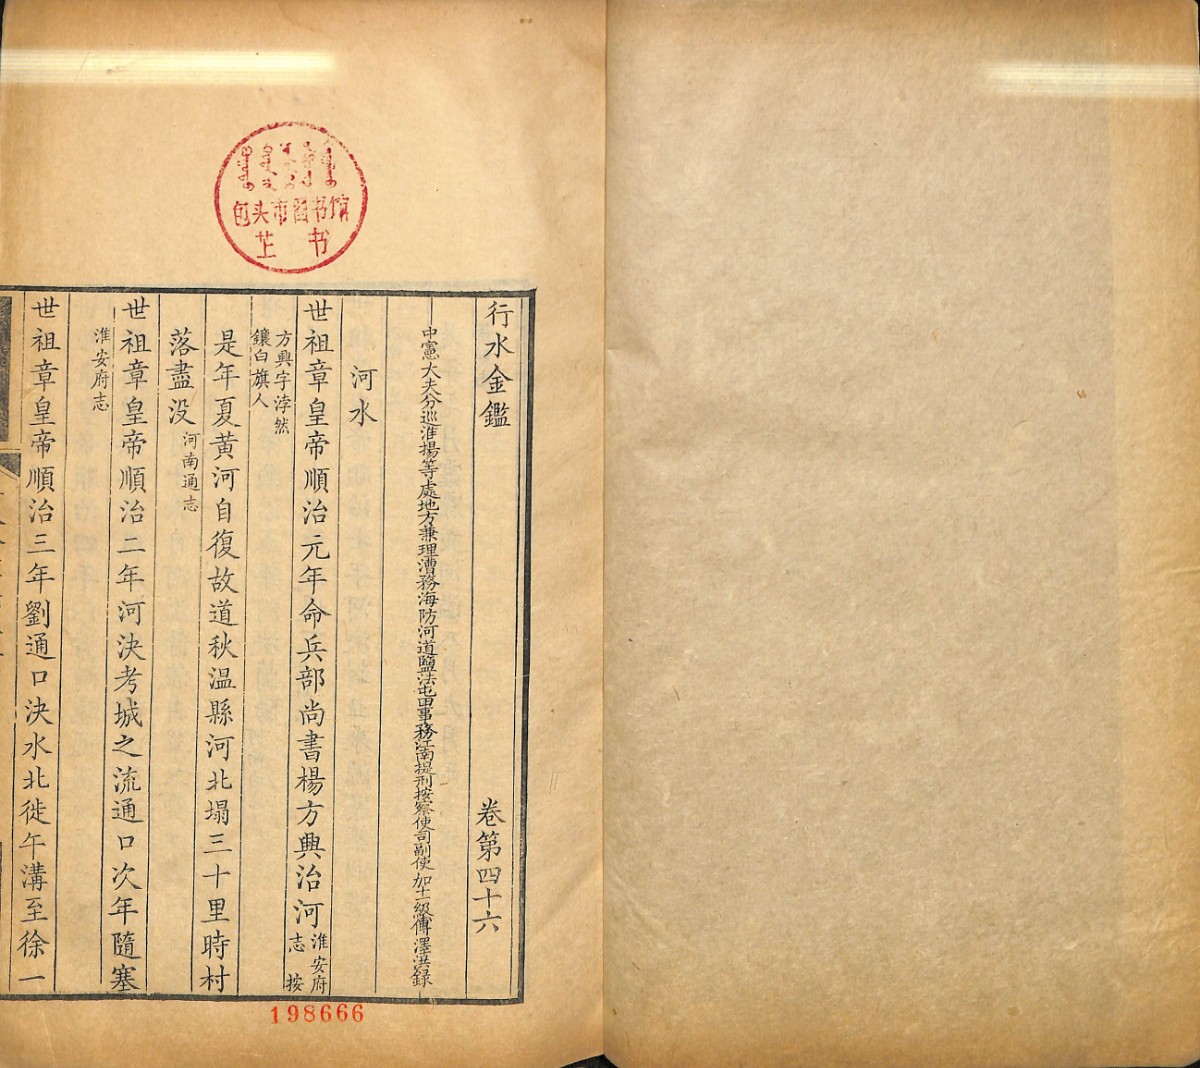 行水金鑑 卷第四十六
中憲大夫分巡淮揚等處地方兼理漕務海防河道鹽法屯田事務江南提刑按察使司副使加十一級傅澤洪錄
河水
世祖章皇帝順治元年命兵部尚書楊方興治河淮安府志 按
方興字浡然
鑲白旗人
是年夏黃河自復故道秋温縣河北塌三十里時村
落盡没河南通志
世祖章皇帝順治二年河決考城之流通口次年隨塞
淮安府志
世祖章皇帝順治三年劉通口決水北徙午溝至徐一
包头市图书馆
芷书
198666